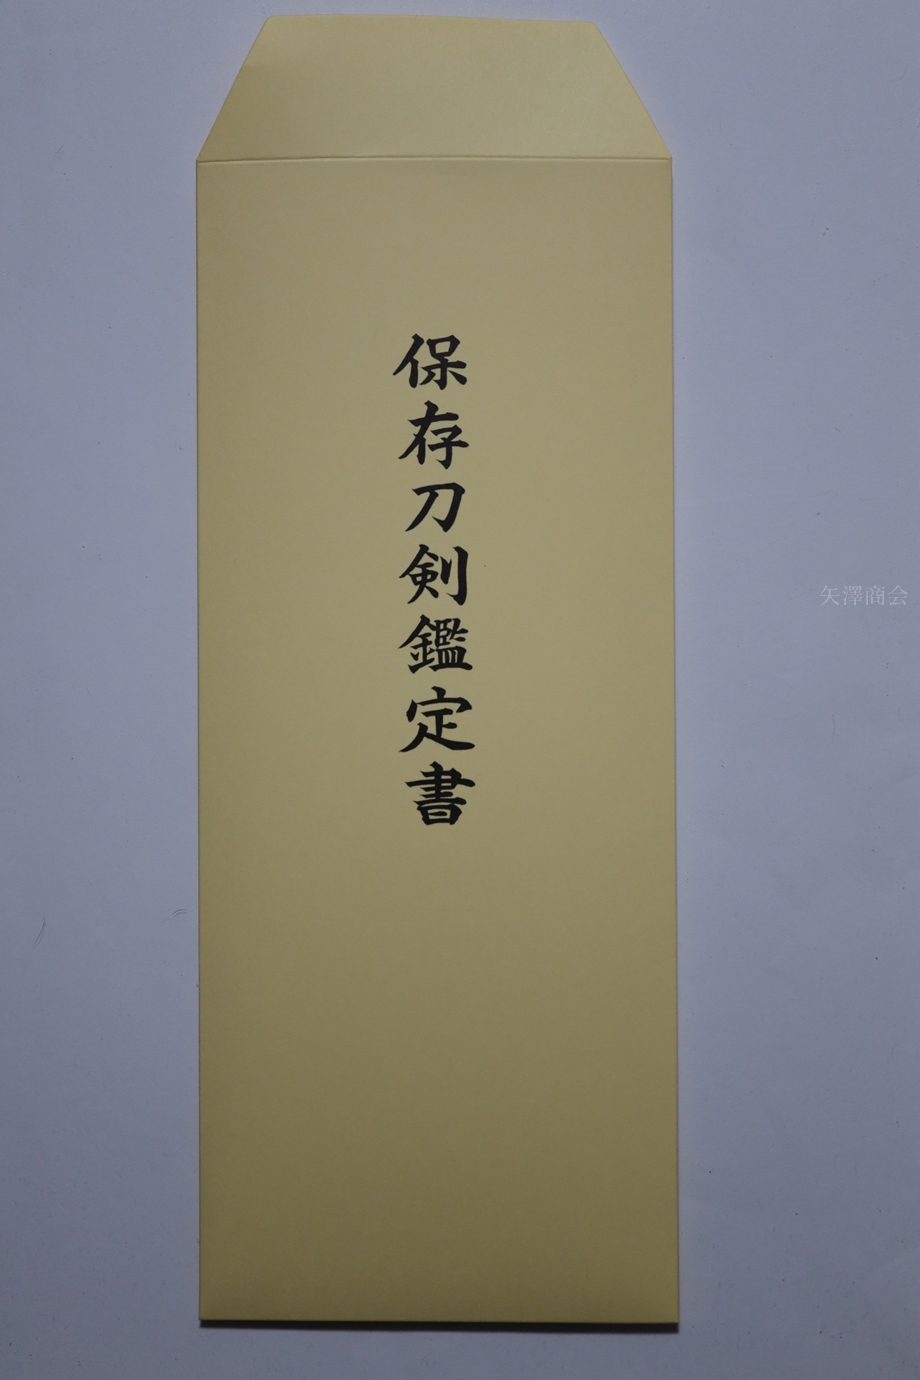 保存刀剣鑑定書
矢澤商会